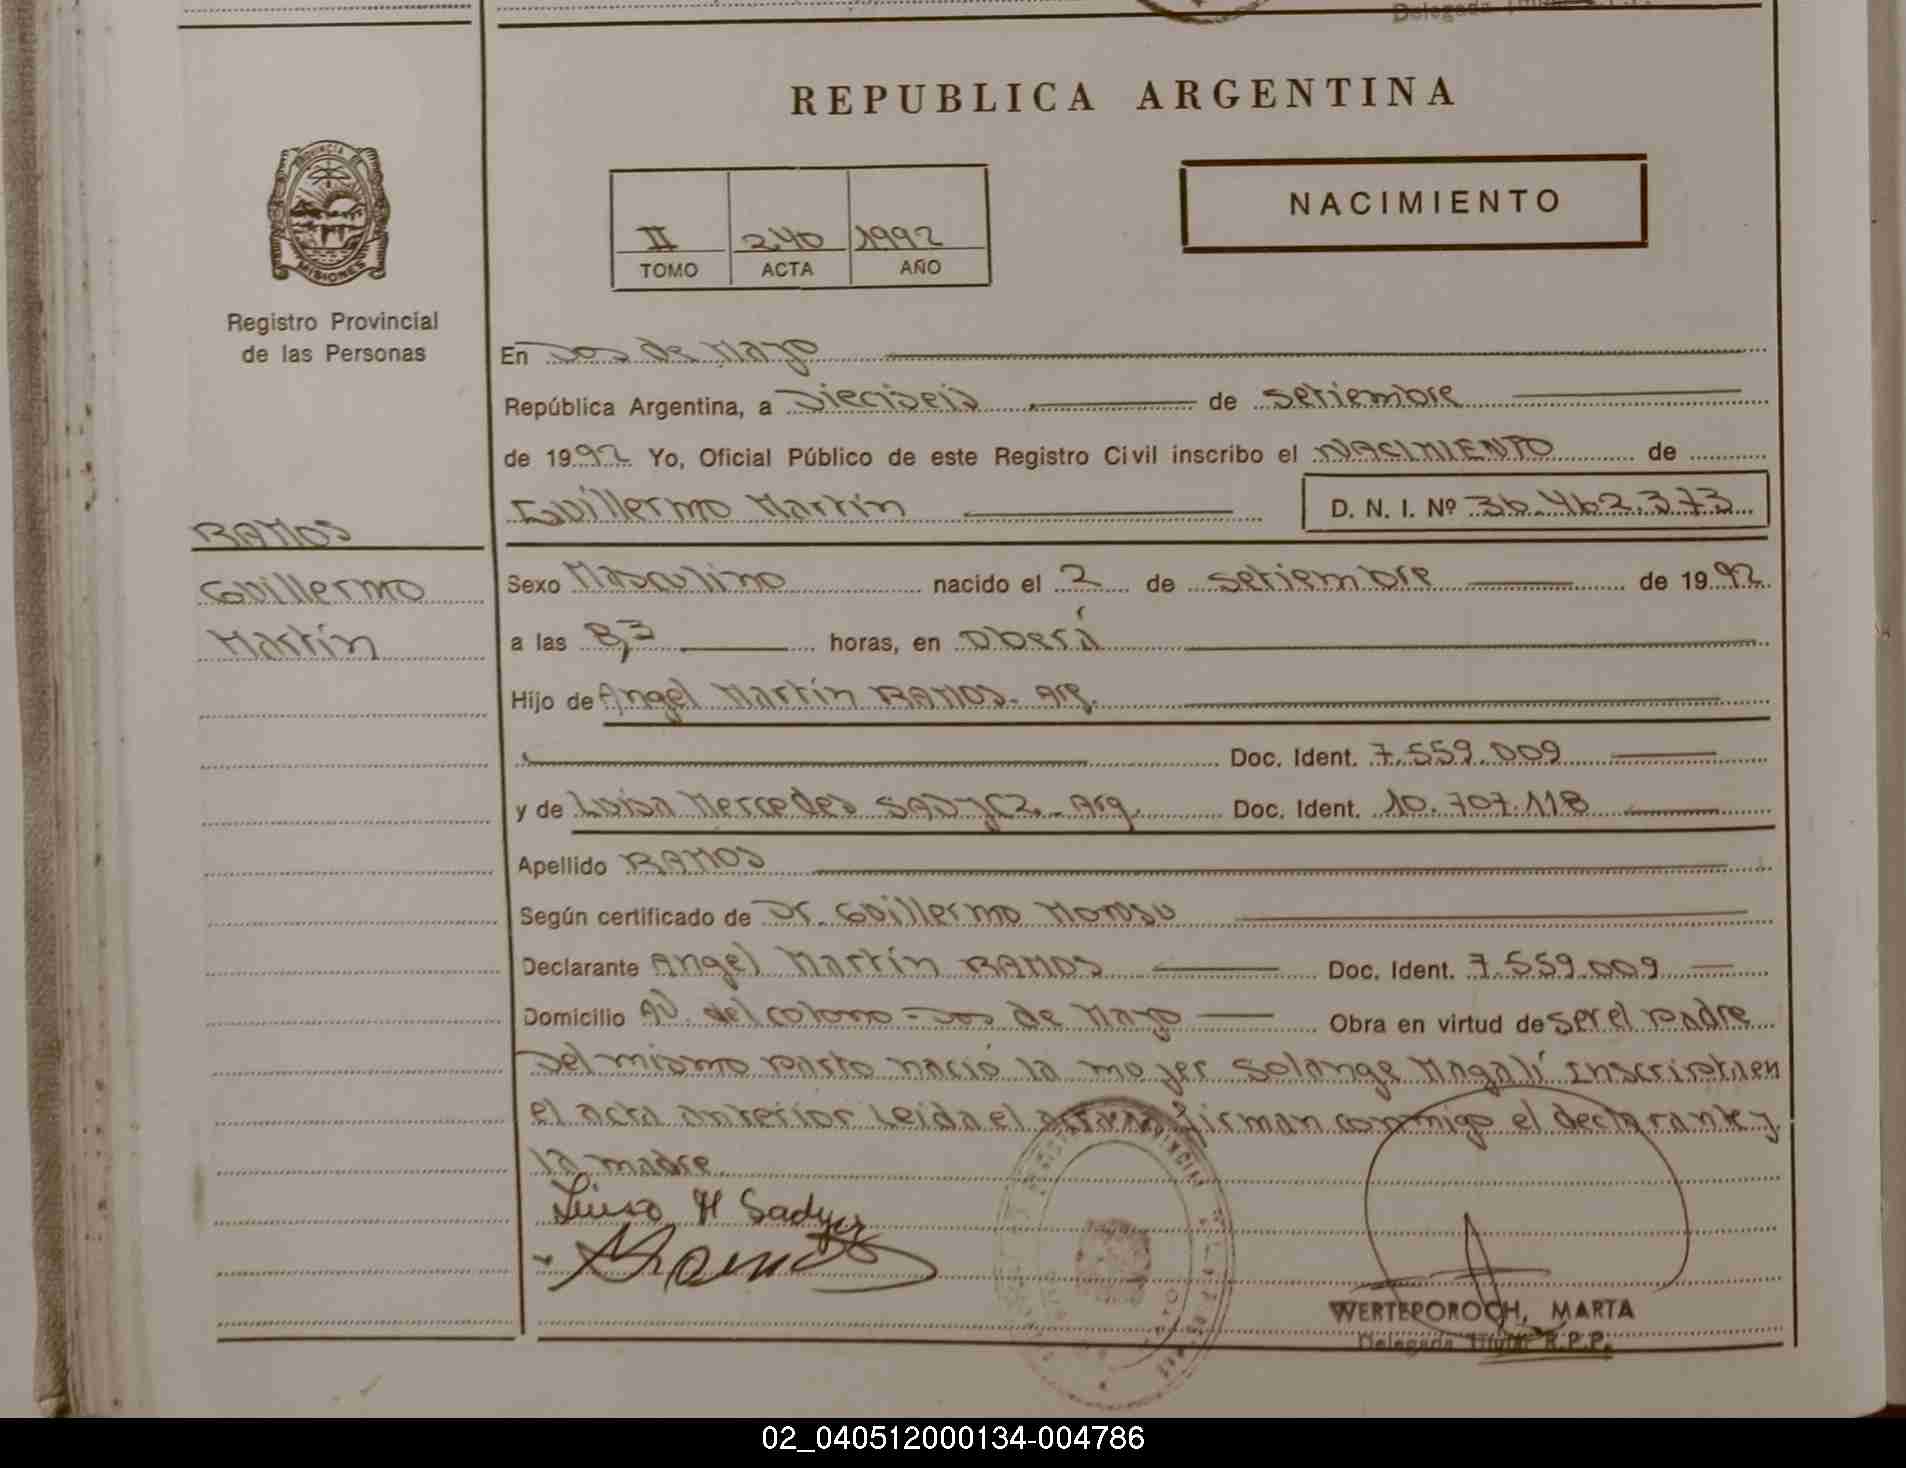 Delegada
REPUBLICA ARGENTINA
PROVINCIA DE
MISIONES
NACIMIENTO
II 240 1992
TOMO ACTA AÑO
Registro Provincial
de las Personas
En Dos de Mayo
República Argentina, a Dieciseis de setiembre
de 1992 Yo, Oficial Público de este Registro Civil inscribo el NACIMIENTO de
Guillermo Martín D. N. I. Nº 36.462.373
RAMOS
Guillermo
Martín
Sexo Masculino nacido el 2 de setiembre de 1992
a las 8,3 horas, en Oberá
Hijo de Angel Martín RAMOS. Arg.
Doc. Ident. 7.559.009
y de Luisa Mercedes SADYCZ - Arg. Doc. Ident. 10.707.118
Apellido RAMOS
Según certificado de Dr. Guillermo
Declarante Angel Martín RAMOS Doc. Ident. 7.559.009
Domicilio AV. del colono - Dos de Mayo Obra en virtud de ser el padre
Del mismo parto nació la mujer Solange Magalí Inscripta en
el acta anterior Leida el acta firman conmigo el declarante y
la madre.
Luisa M Sadycz
WERTEPOROCH, MARTA
Delegada Titular R.P.P.
02_040512000134-004786